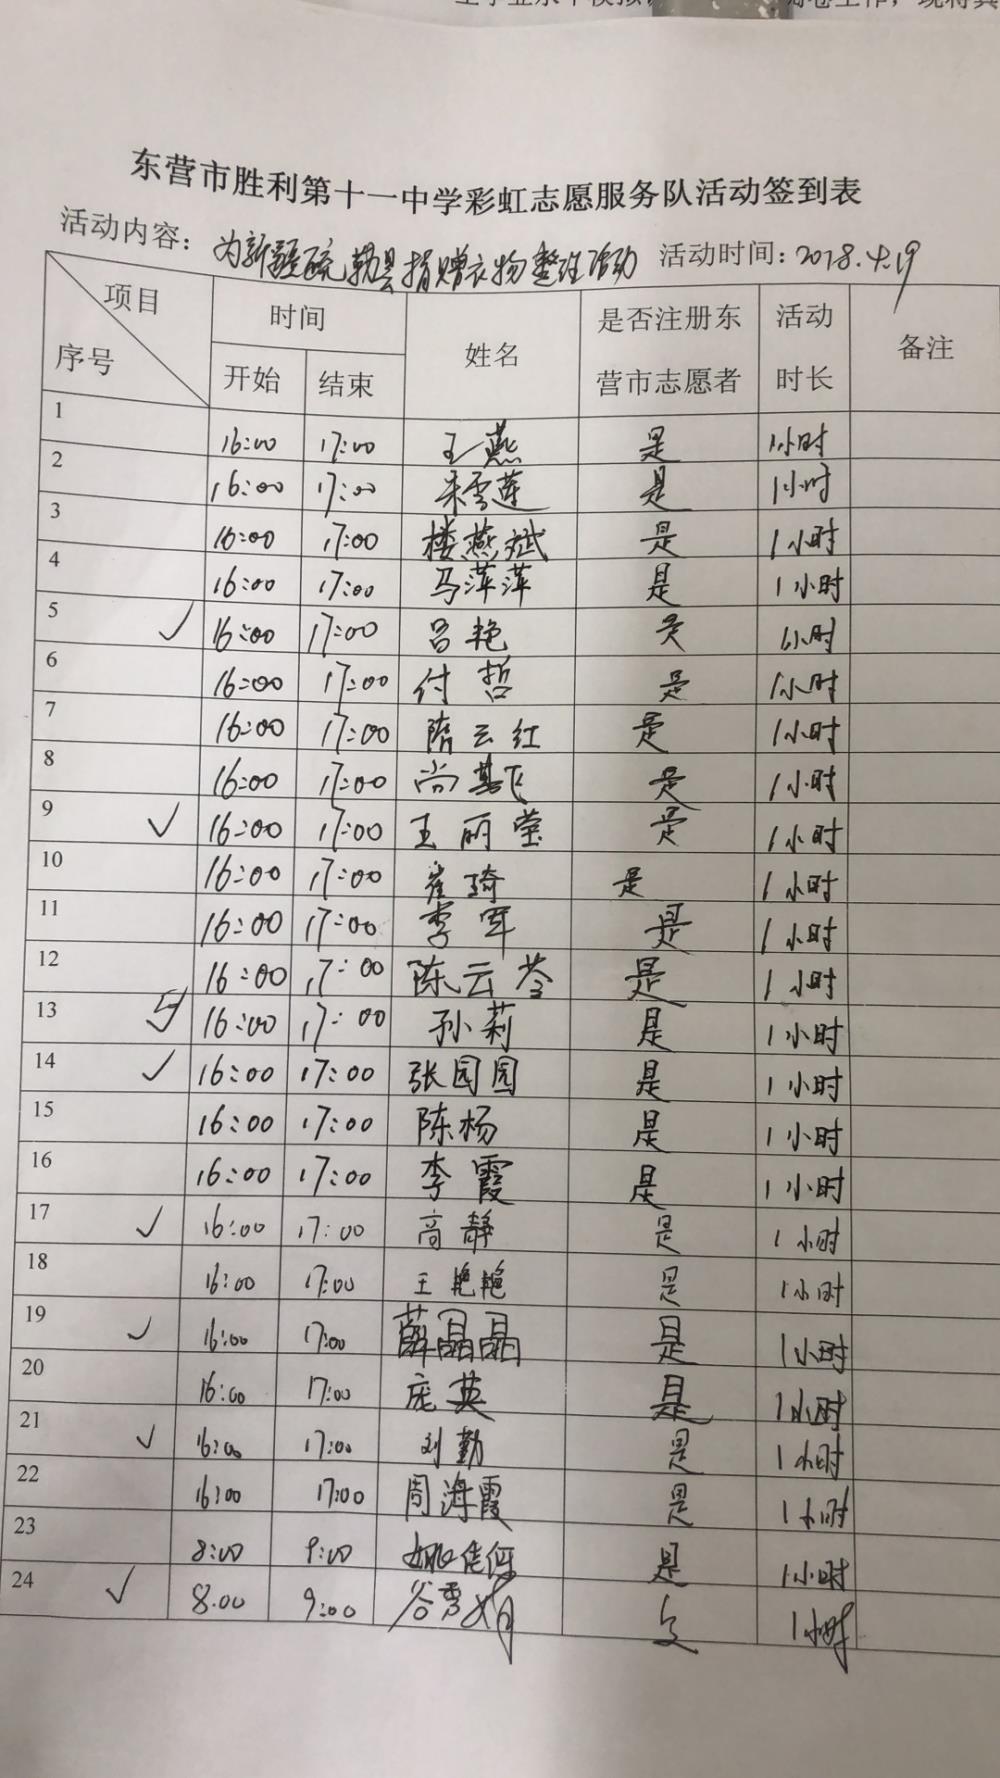 东营市胜利第十一中学彩虹志愿服务队活动签到表
活动内容：为新疆疏勒县捐赠衣物整理活动 活动时间：2018.4.19
项目 时间 姓名 是否注册东营市志愿者 活动时长 备注
序号 开始 结束
1 16:00 17:00 王燕 是 1小时
2 16:00 17:00 宋雪莲 是 1小时
3 16:00 17:00 楼燕斌 是 1小时
4 16:00 17:00 马萍萍 是 1小时
5 ✓ 16:00 17:00 吕艳 是 1小时
6 16:00 17:00 付哲 是 1小时
7 16:00 17:00 隋云红 是 1小时
8 16:00 17:00 尚燕飞 是 1小时
9 ✓ 16:00 17:00 王丽莹 是 1小时
10 16:00 17:00 崔琦 是 1小时
11 16:00 17:00 李军 是 1小时
12 16:00 17:00 陈云苓 是 1小时
13 16:00 17:00 孙莉 是 1小时
14 ✓ 16:00 17:00 张园园 是 1小时
15 16:00 17:00 陈杨 是 1小时
16 16:00 17:00 李霞 是 1小时
17 ✓ 16:00 17:00 高静 是 1小时
18 16:00 17:00 王艳艳 是 1小时
19 ✓ 16:00 17:00 薛晶晶 是 1小时
20 16:00 17:00 庞英 是 1小时
21 ✓ 16:00 17:00 刘勤 是 1小时
22 16:00 17:00 周海霞 是 1小时
23 8:00 9:00 是 1小时
24 ✓ 8:00 9:00 谷秀娟 是 1小时